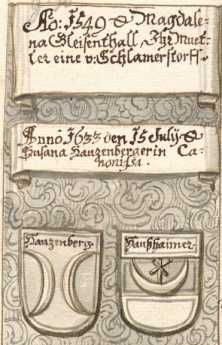 Aō: 1549 & Magdale-
na Gleisenthall, Ihr Muet-
ter eine v: Schlamerstorff.
Anno 1633 den 15 July &
Susana Hauzenbergerin Ca-
nonissa.
Hauzenberg.